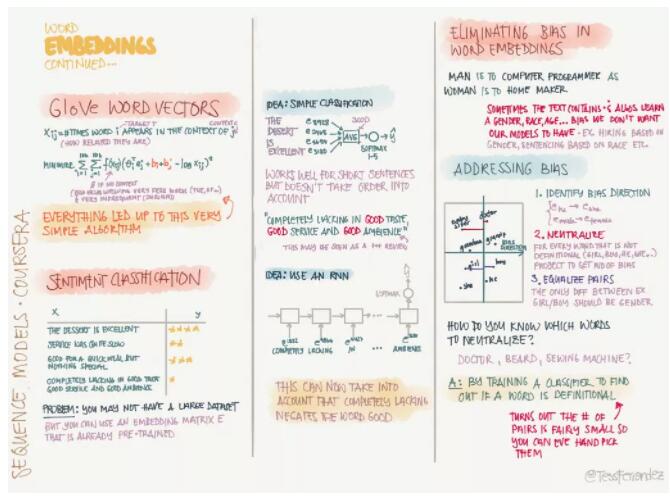 WORD
EMBEDDINGS
CONTINUED...
GloVe WORD VECTORS
TARGET
CONTEXT
Xij = #TIMES WORD i APPEARS IN THE CONTEXT OF j
(HOW RELATED THEY ARE)
MINIMIZE
EVERYTHING LED UP TO THIS VERY
SIMPLE ALGORITHM
SENTIMENT CLASSIFICATION
X y
THE DESSERT IS EXCELLENT
SERVICE WAS QUITE SLOW
GOOD FOR A QUICK MEAL BUT
NOTHING SPECIAL
COMPLETELY LACKING IN GOOD TASTE
GOOD SERVICE AND GOOD AMBIENCE
PROBLEM: YOU MAY NOT HAVE A LARGE DATASET
BUT YOU CAN USE AN EMBEDDING MATRIX E
THAT IS ALREADY PRE-TRAINED
SEQUENCE MODELS · COURSERA
IDEA: SIMPLE CLASSIFICATION
THE
DESSERT
IS
EXCELLENT
AVG
SOFTMAX
1-5
WORKS WELL FOR SHORT SENTENCES
BUT DOESN'T TAKE ORDER INTO
ACCOUNT
"COMPLETELY LACKING IN GOOD TASTE,
GOOD SERVICE AND GOOD AMBIENCE"
THIS MAY BE SEEN AS A REVIEW
IDEA: USE AN RNN
SOFTMAX
COMPLETELY LACKING IN ... AMBIENCE
THIS CAN NOW TAKE INTO
ACCOUNT THAT COMPLETELY LACKING
NEGATES THE WORD GOOD
ELIMINATING BIAS IN
WORD EMBEDDINGS
MAN IS TO COMPUTER PROGRAMMER AS
WOMAN IS TO HOME MAKER
SOMETIMES THE TEXT CONTAINS & ALGOS LEARN
A GENDER, RACE, AGE... BIAS WE DON'T WANT
OUR MODELS TO HAVE · EX. HIRING BASED ON
GENDER, SENTENCING BASED ON RACE ETC.
ADDRESSING BIAS
1. IDENTIFY BIAS DIRECTION
ehe - eshe
emale - efemale
2. NEUTRALIZE
FOR EVERY WORD THAT IS NOT
DEFINITIONAL (GIRL, BOY, HE, SHE...)
PROJECT TO GET RID OF BIAS
3. EQUALIZE PAIRS
THE ONLY DIFF BETWEEN EX
GIRL/BOY SHOULD BE GENDER
doctor
BIAS
DIRECTION
girl
boy
she
he
HOW DO YOU KNOW WHICH WORDS
TO NEUTRALIZE?
DOCTOR, BEARD, SEWING MACHINE?
A: BY TRAINING A CLASSIFIER TO FIND
OUT IF A WORD IS DEFINITIONAL
TURNS OUT THE # OF
PAIRS IS FAIRLY SMALL SO
YOU CAN EVE HAND PICK
THEM
@TessFerrandez